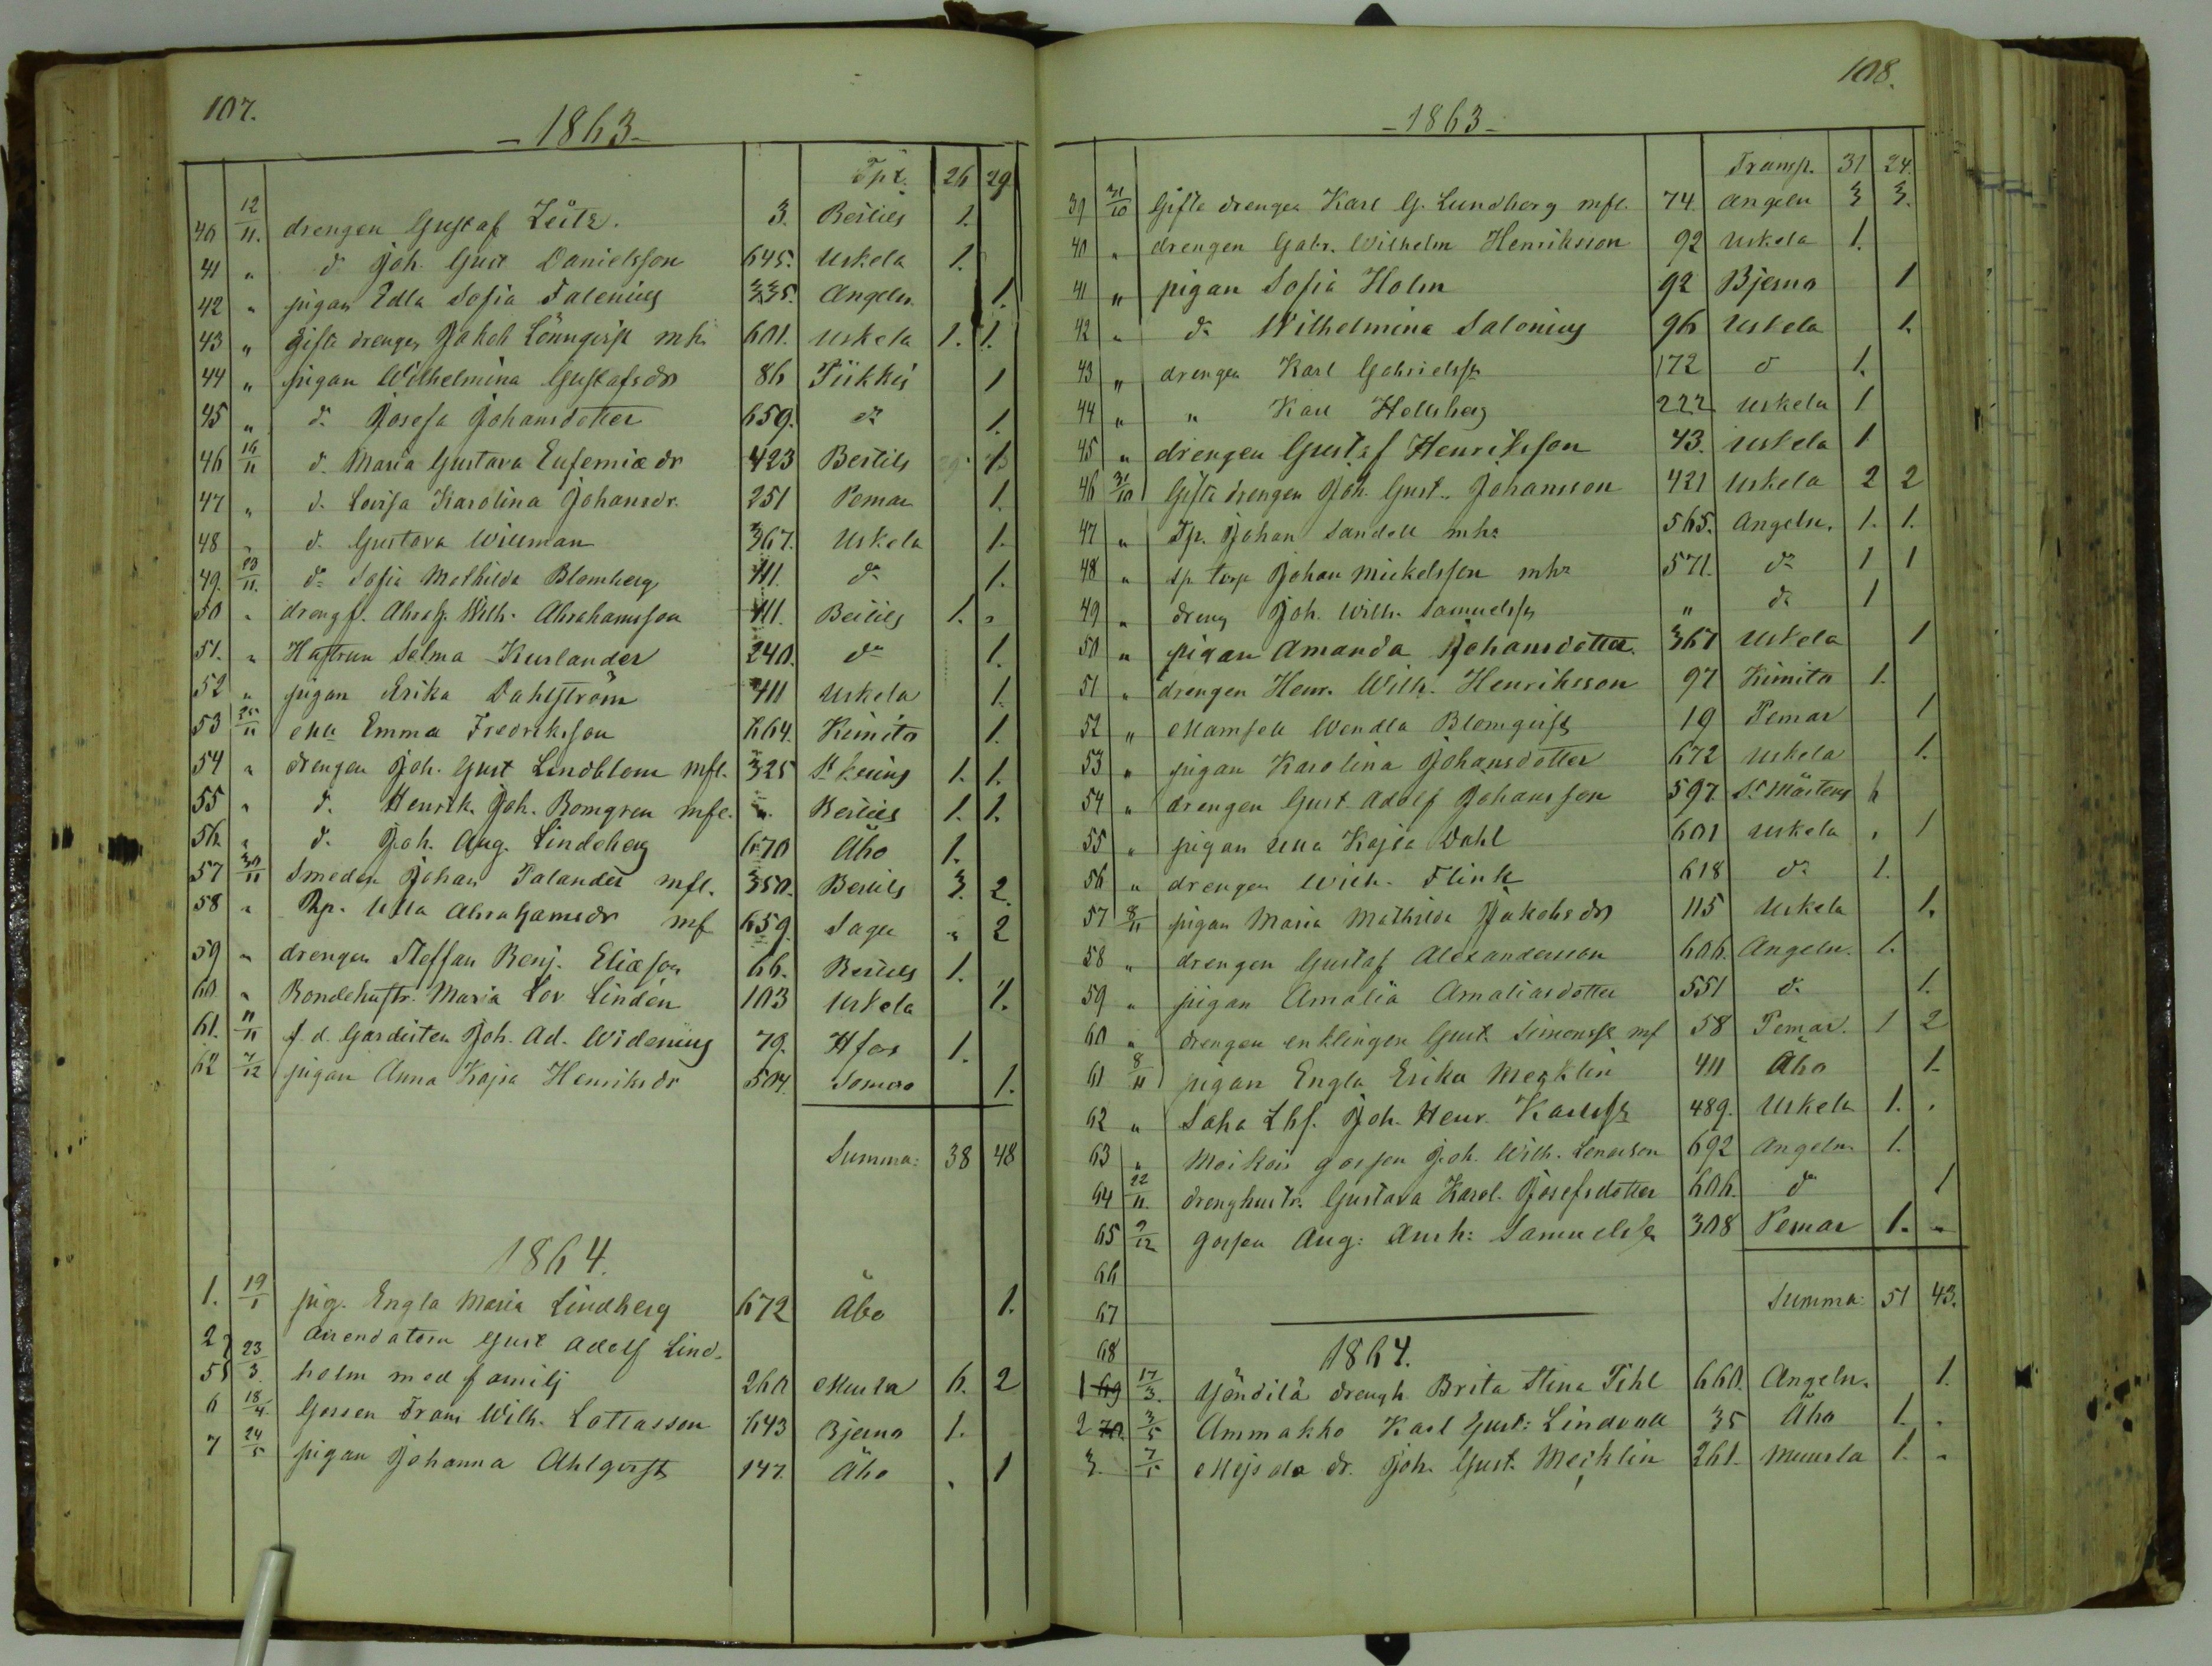 107.
- 1863 -
Tpt. 26 29
40 12/11. drengen Gustaf Zeitz. 3. Bertils 1.
41 " d:o Joh. Gust Danielsson 645. Uskela 1.
42 " pigan Edla Sofia Falenius 335. Angeln. 1.
43 " gifta drengen Jakob Lönnqvist mh. 601. Uskela 1. 1.
44 " pigan Wilhelmina Gustafsdr 86 Piikkis 1
45 " d:o Josefa Johansdotter 659. d:o 1.
46 16/11 d:o Maria Gustava Eufemiædr 423 Bertils 1
47 " d:o Lovisa Karolina Johansdr. 251 Pemar 1.
48 " d:o Gustava Willman 367. Uskela 1.
49. 23/11. d:o Sofia Mathilda Blomberg 411. d:o 1.
50 " drengf. Abrah. Wilh. Abrahamsson 411. Bertils 1. "
51. " Hustrun Selma Kurlander 240. d:o 1.
52 " pigan Erika Dahlström 411 Uskela 1.
53 25/11 Emma Fredriksson 664. Kimito 1.
54 " drengen Joh. Gust Lindblom mfl. 325 1. 1.
55 " d:o Henrik Joh. Bomgren mfl. " Bertils 1. 1.
56. " d:o Joh. Aug. Lindeberg 670 Åbo 1.
57 30/11 Smeden Johan Palander mfl. 350. Bertils 3. 2.
58 " Ulla Abrahamsdr mf 659. Sagu " 2
59 " drengen Steffan Benj. Eliæson 66. Bertils 1.
60 " Bondehustr. Maria Lov. Lindén 103 Uskela 1.
61. 11/11 f.d. Gardisten Joh. Ad. Widenius 79. Hfors 1.
62 7/12 pigan Anna Kajsa Henriksdr 504. Somero 1.
Summa: 38 48
1864.
1. 19/1 pig. Engla Maria Lindberg 672 Åbo 1.
2 23/3. Arrendatorn Gust Adolf Lind-
5 holm med familj 260 Muurla 6. 2
6 18/4. Gossen Frans Wilh. Lottasson 643 Bjerno 1.
7 24/5 pigan Johanna Ahlqvist 147. Åbo " 1
108.
- 1863 -
Transp. 31 24.
39 31/10 Gifta drengen Karl G. Lundberg mfl. 74. Angeln 3 3.
40 " drengen Gabr. Wilhelm Henriksson 92 Uskela 1.
41 " pigan Sofia Holm 92 Bjerno 1
42 " d:o Wilhelmina Salonius 96 Uskela 1.
43 " drengen Karl Gabrielss: 172 d:o 1.
44 " " Karl Hellsberg 222. Uskela 1
45 " drengen Gustaf Henriksson 43. Uskela 1
46 31/10 Gifta drengen Joh. Gust. Johansson 421 Uskela 2 2
47 " Tp. Johan Sandell mh: 565. Angeln. 1. 1.
48 " Sp. torp Johan Mickelsson mh: 571. d:o 1 1
49 " dreng Joh. Wilh. Samuelss: " d:o 1
50 " pigan Amanda Johansdotter. 367 Uskela 1
51 " drengen Henr. Wilh. Henriksson 97 Kimito 1.
52 " Mamsell Wendla Blomqvist 19 Pemar 1
53 " pigan Karolina Johansdotter 672 Uskela 1.
54 " drengen Gust. Adolf Johansson 597. S:t Mårtens 1
55 " pigan Ulla Kajsa Dahl 601 Uskela " 1
56 " drengen Wilh. Flink 618 d:o 1.
57 8/11 pigan Maria Mathilda Jakobsdr 115 Uskela 1.
58 " drengen Gustaf Alexandersson 606. Angeln. 1.
59 " pigan Amalia Amaliasdotter 551 d:o 1.
60 " drengen enklingen Gust. Simonss: mf 58 Pemar. 1 2
61 8/11 pigan Engla Erika Mecklin 411 Åbo 1.
62 " Saha Lhf. Joh. Henr. Karlss: 489. Uskela 1. "
63 " Moikois gossen Joh. Wilh. Lenason 692 Angeln. 1.
64 22/11. drenghustr. Gustava Karol. Josefsdotter 606. d:o 1
65 9/12 gossen Aug: Samuelss: 308 Pemar 1. "
66
67 Summa: 51 43.
68 1864.
1 69 17/3. Yöndilä drengh. Brita Stina Pihl 660. Angeln. 1.
2 70. 3/5 Ammakko Karl Gust: Lindvall 35 Åbo 1. "
3. 7/5 dr. Joh. Gust. Mecklin 261. Muurla 1. "